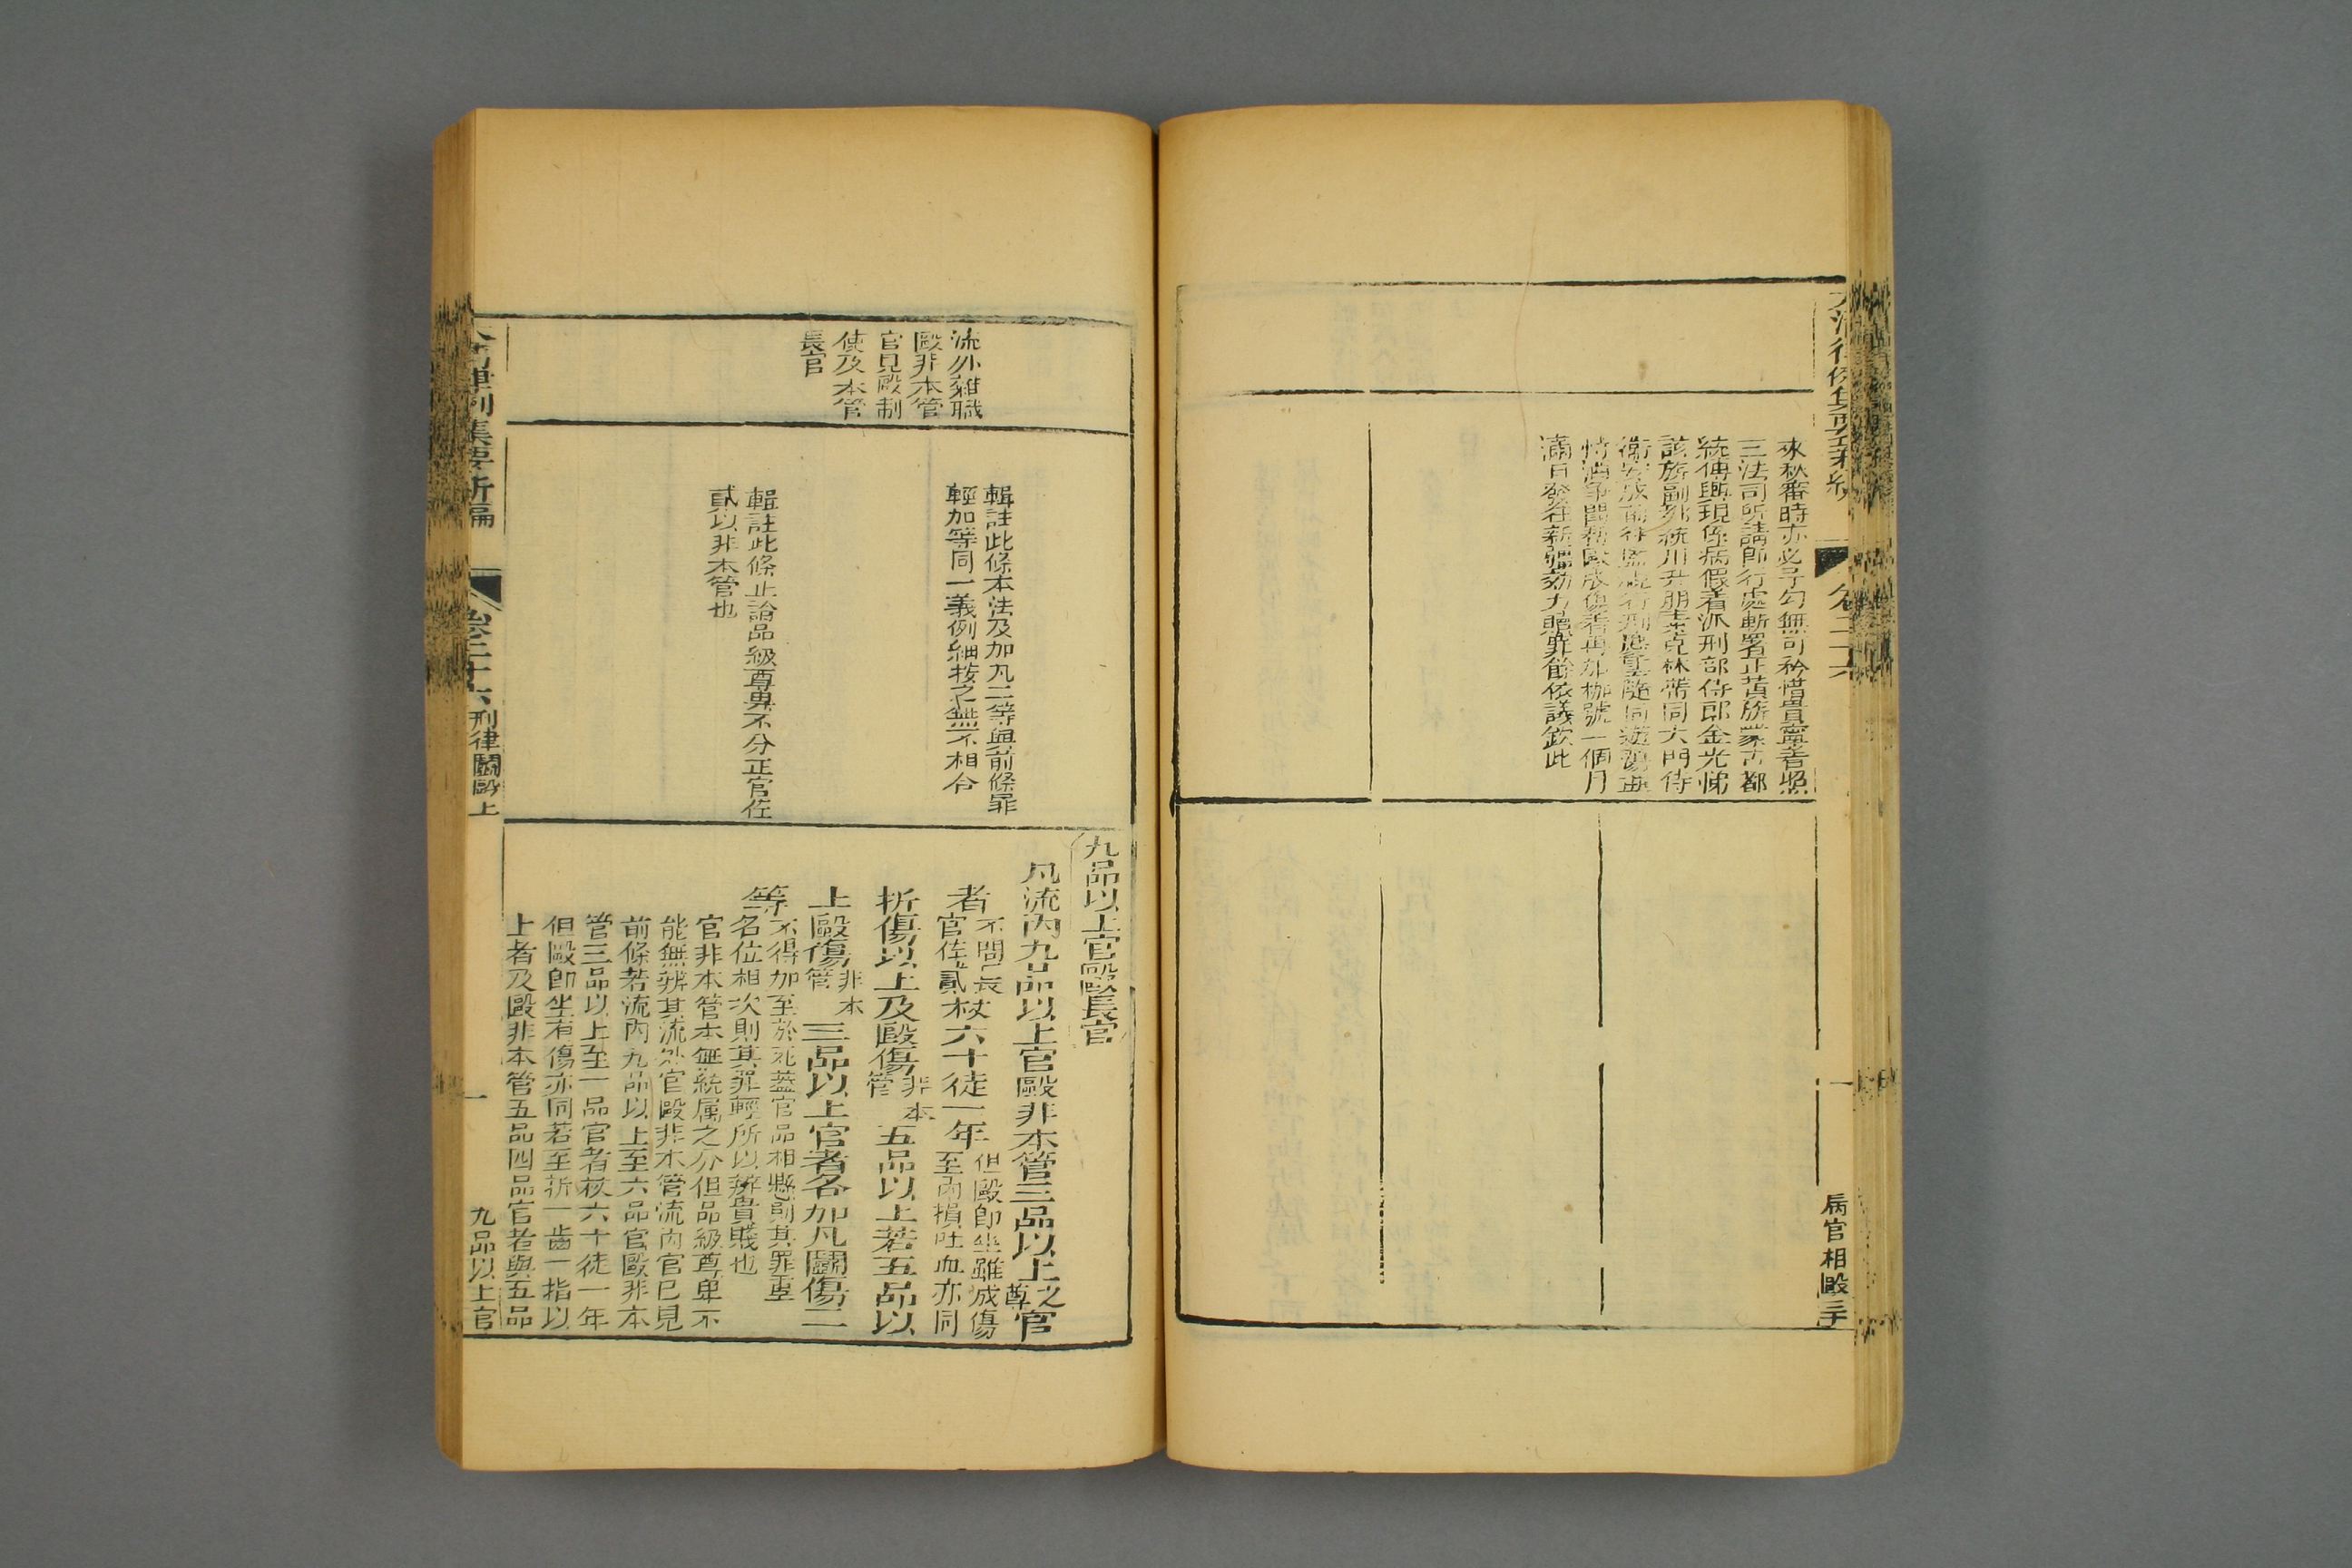 來秋審時亦必予勾無可矜惜貴寧著照
三法司所請即行處斬署正黃旗蒙古都
統傅興現係病假著派刑部侍郎金光悌
該旗副都統川井朋素克林帶同大門侍
滿日發往新疆効力贖罪餘依議欽此
病官相毆
流外雜職
毆非本管
官見毆制
使及本管
長官
輯註此條本法及加凡二等與前條罪
輕加等同一義例細按之無不相合
輯註此條止論品級尊卑不分正官佐
貳以非本管也
九品以上官毆長官
凡流內九品以上官毆非本管三品以上之尊官
者不問長官佐貳杖六十徒一年但毆即坐雖成傷至內損吐血亦同
折傷以上及毆傷非本管五品以上若五品以
上毆傷非本管三品以上官者各加凡鬬傷二
等不得加至於死蓋官品相懸則其罪重
名位相次則其罪輕所以辨貴賤也
官非本管本無統属之分但品級尊卑不
能無辨其流外官毆非本管流內官已見
前條若流內九品以上至六品官毆非本
管三品以上至一品官者杖六十徒一年
但毆即坐有傷亦同若至折一齒一指以
上者及毆非本管五品四品官若與五品
大清律例集要新編
卷二十六
刑律鬬毆上
一
九品以上官